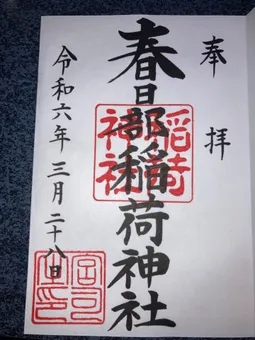 奉拝
春日部稲荷神社
令和六年三月二十八日